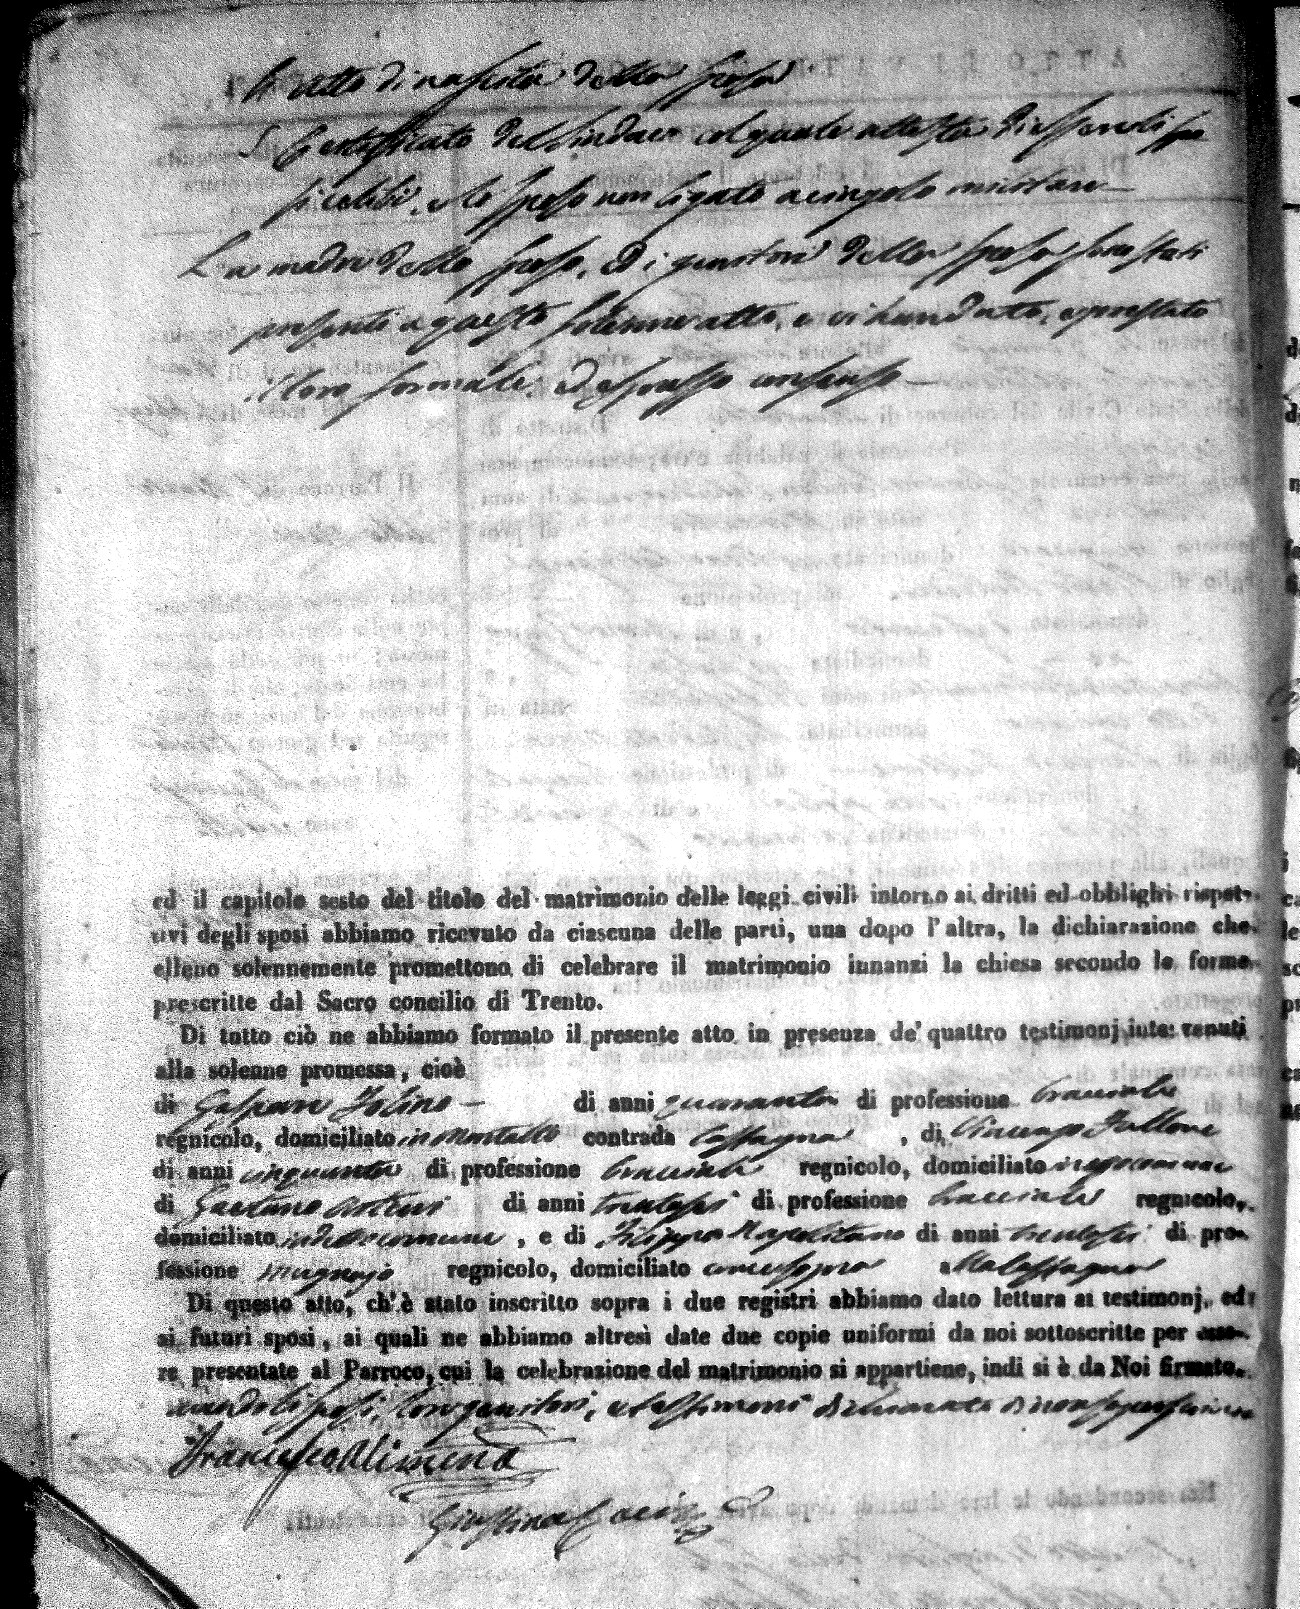 L'atto di nascita della sposa
Il Certificato del Sindaco col quale attesta di essere li spo
si celibi, e lo sposo non ligato a cingolo militare —
La madre dello sposo, ed i genitori della sposa sono stati
presenti a questo solenne atto, e vi han dato, e prestato
il loro formale, ed espresso consenso —
ed il capitolo sesto del titolo del matrimonio delle leggi civili intorno ai dritti ed obblighi rispet-
tivi degli sposi abbiamo ricevuto da ciascuna delle parti, una dopo l'altra, la dichiarazione che
elleno solennemente promettono di celebrare il matrimonio innanzi la chiesa secondo le forme
prescritte dal Sacro concilio di Trento.
Di tutto ciò ne abbiamo formato il presente atto in presenza de' quattro testimonj intervenuti
alla solenne promessa, cioè
di Gaspare di anni quaranta di professione bracciale
regnicolo, domiciliato in contrada , di Vincenzo
di anni cinquanta di professione bracciale regnicolo, domiciliato
di Gaetano di anni trentasei di professione bracciale regnicolo,
domiciliato in detto comune , e di Filippo Napolitano di anni trentasei di pro-
fessione mugnajo regnicolo, domiciliato come sopra
Di questo atto, ch'è stato inscritto sopra i due registri abbiamo dato lettura ai testimonj, ed
ai futuri sposi, ai quali ne abbiamo altresì date due copie uniformi da noi sottoscritte per esse-
re presentate al Parroco, cui la celebrazione del matrimonio si appartiene, indi si è da Noi firmato.
avendo li sposi, loro genitori, e testimoni dichiarato di non sapere scrivere
Francesco Alimena
Giustino